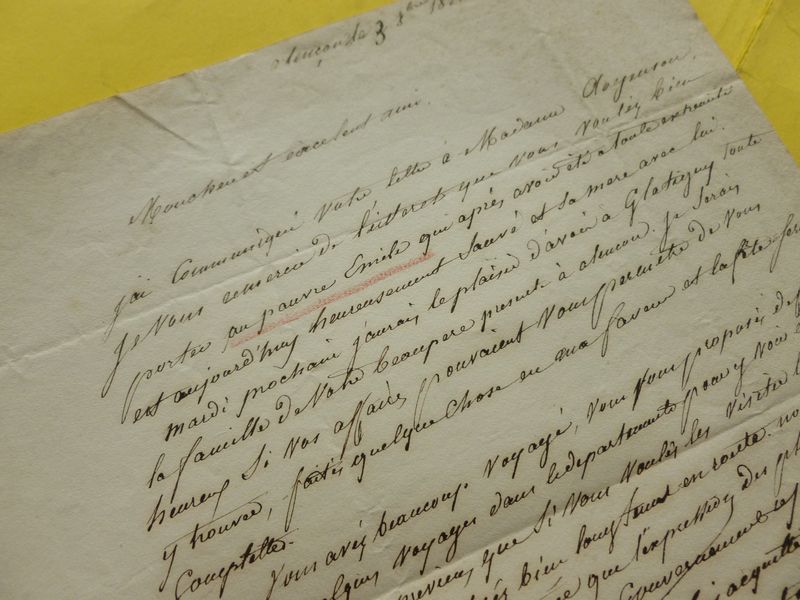 3 8bre
Mon cher et excelent ami.
J'ai Communiqué Votre lettre à Madame
Je Vous remercie de l'interet que Vous Voulés bien
porter au pauvre Emile qui après avoir été a toute extremité
est aujourd'huy heureusement Sauvé et sa mere avec lui.
mardi prochain j'aurais le plaisir d'avoir à Glatigny toute
la famille de Votre beaupere presente à alencon. je serais
heureux Si Vos affaires pouvaient Vous permettre de Vous
y trouver, faites quelque Chose en ma faveur et la fête sera
Complette.
Vous avés beaucoup Voyagé, Vous Vous proposés de
quelques Voyages dans le departement pour y Voir
que Si Vous Voulés les Visiter
bien longtems en route.
que l'expression des
Gouvernement